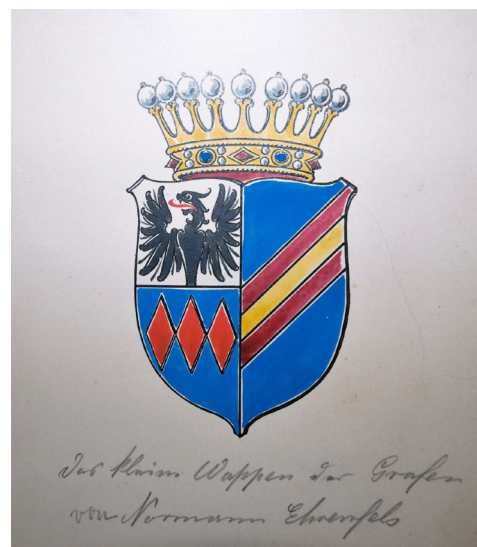 Das kleine Wappen der Grafen
von Normann Ehrenfels